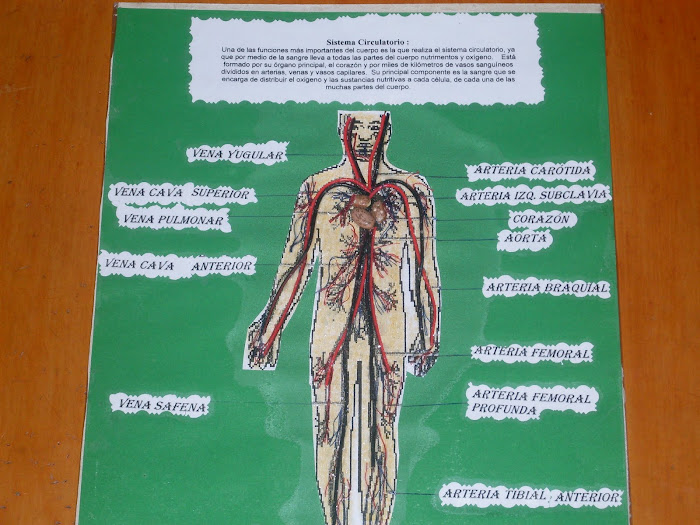 Sistema Circulatorio :
Una de las funciones más importantes del cuerpo es la que realiza el sistema circulatorio, ya
que por medio de la sangre lleva a todas las partes del cuerpo nutrimentos y oxigeno. Está
formado por su órgano principal, el corazón y por miles de kilómetros de vasos sanguíneos
divididos en arterias, venas y vasos capilares. Su principal componente es la sangre que se
encarga de distribuir el oxigeno y las sustancias nutritivas a cada célula, de cada una de las
muchas partes del cuerpo.
VENA YUGULAR
VENA CAVA SUPERIOR
VENA PULMONAR
VENA CAVA ANTERIOR
VENA SAFENA
ARTERIA CARÓTIDA
ARTERIA IZQ. SUBCLAVIA
CORAZÓN
AORTA
ARTERIA BRAQUIAL
ARTERIA FEMORAL
ARTERIA FEMORAL
PROFUNDA
ARTERIA TIBIAL ANTERIOR